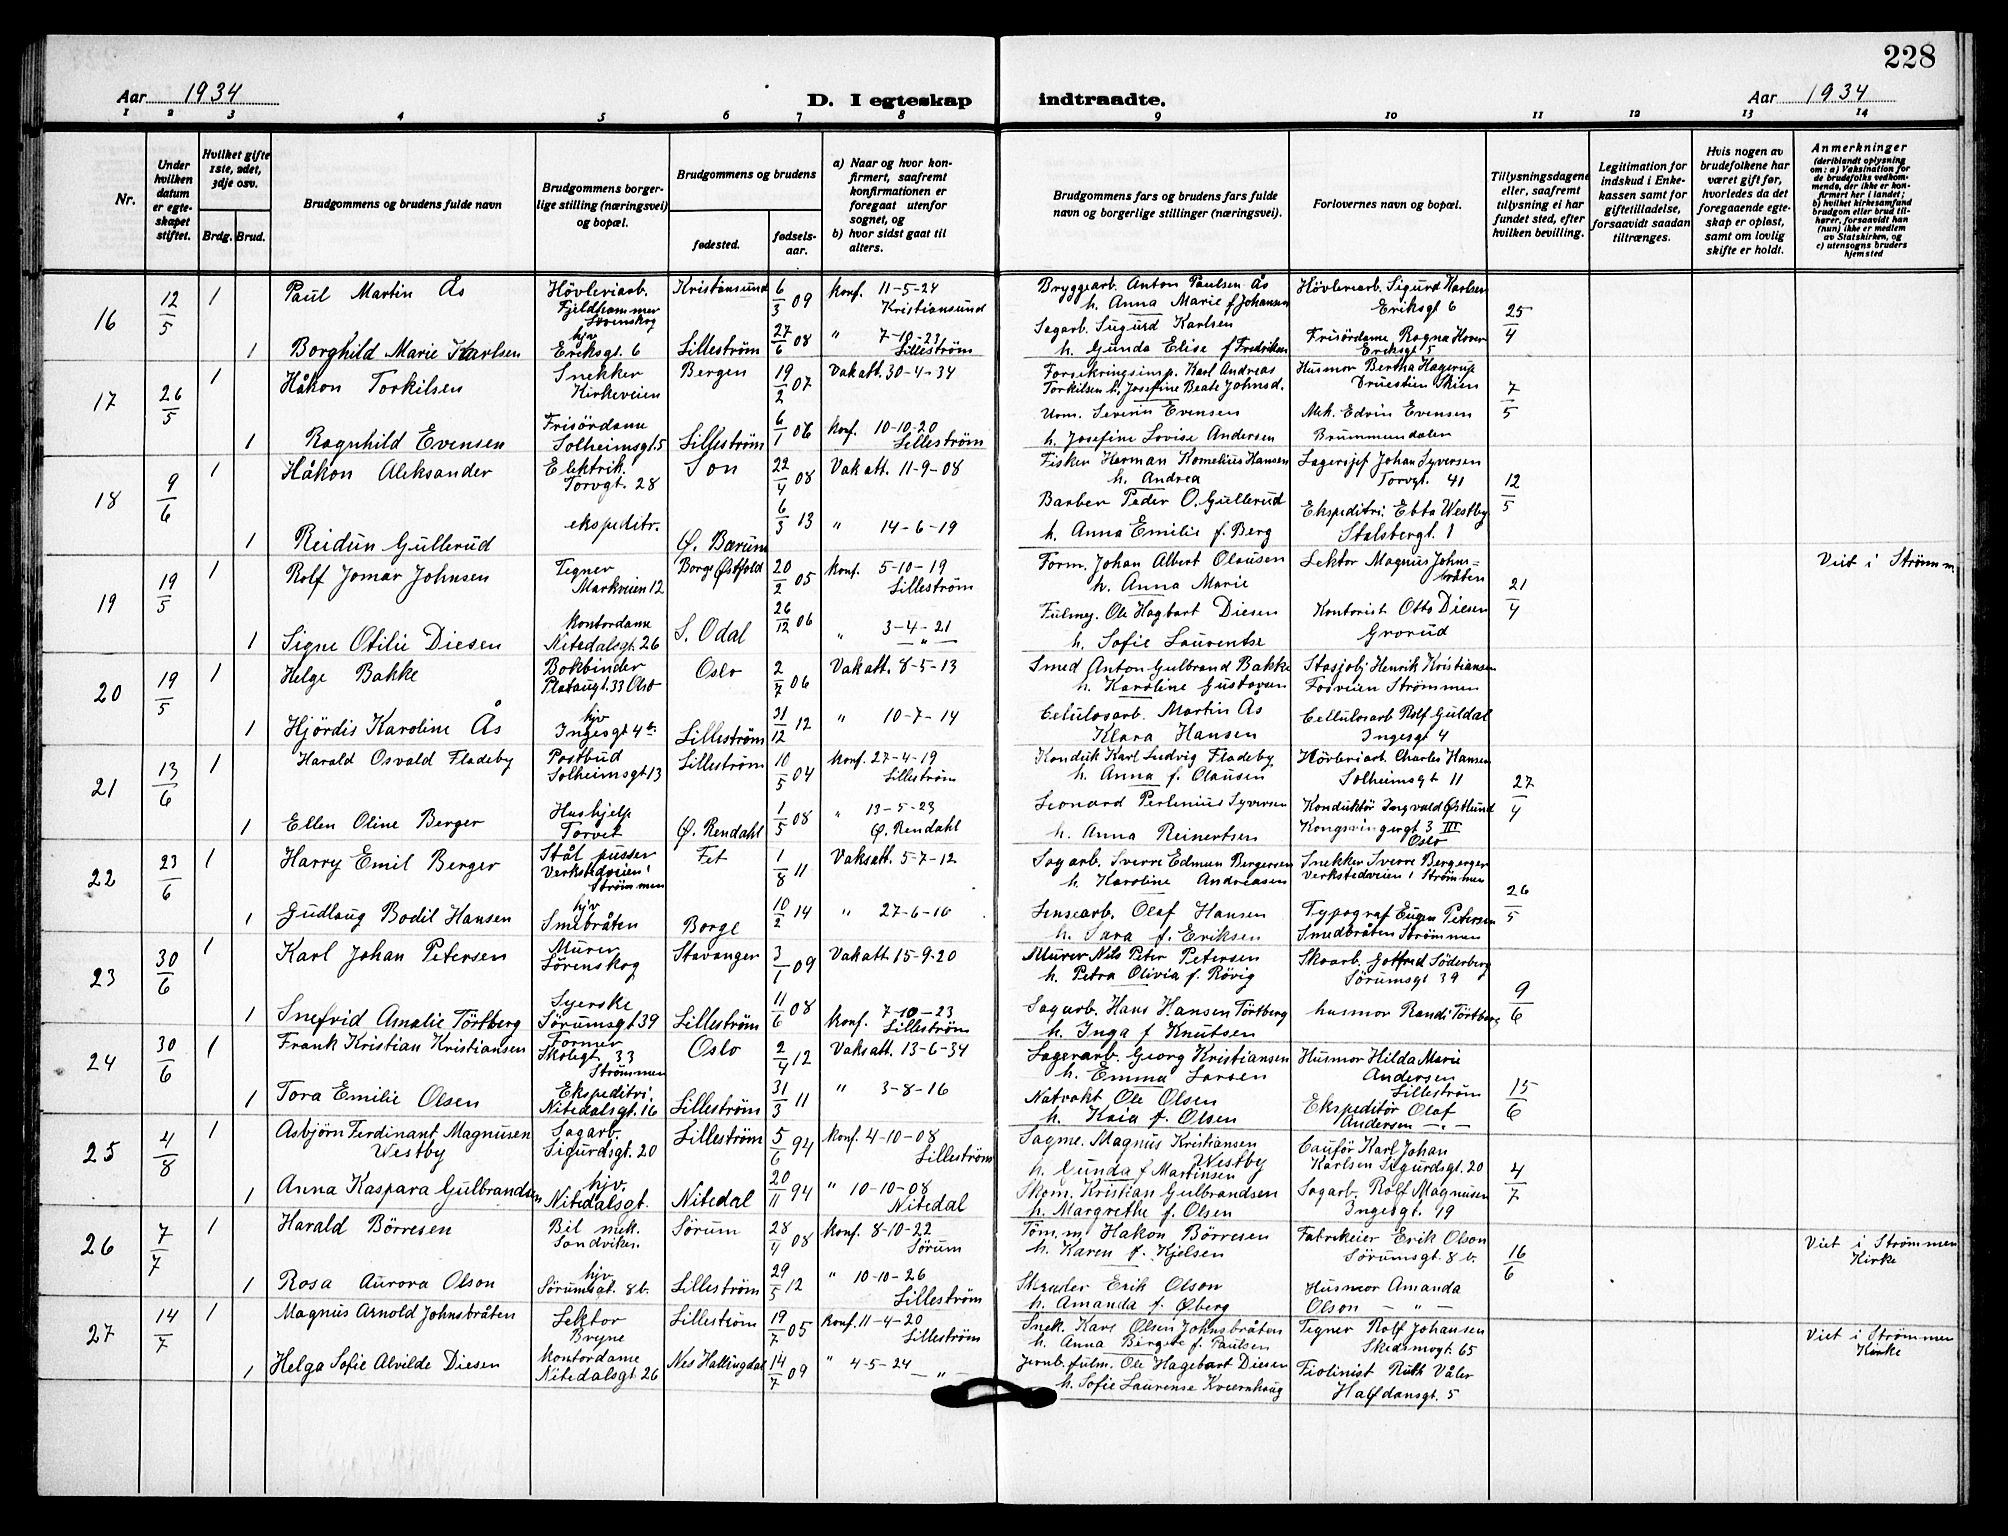 228
Aar 1934
D. I egteskap
indtraadte.
Aar 1934
1 2 3 4 5 6 7 8 9 10 11 12 13 14
Nr.
Under hvilken datum er egteskapet stiftet.
Hvilket gifte 1ste, 2det, 3dje osv.
Brdg. Brud.
Brudgommens og brudens fulde navn
Brudgommens borgerlige stilling (næringsvei) og bopæl.
Brudgommens og brudens
fødested.
fødselsaar.
a) Naar og hvor konfirmert, saafremt konfirmationen er foregaat utenfor sognet, og
b) hvor sidst gaat til alters.
Brudgommens fars og brudens fars fulde navn og borgerlige stillinger (næringsvei).
Forlovernes navn og bopæl.
Tillysningsdagene eller, saafremt tillysning ei har fundet sted, efter hvilken bevilling.
Legitimation for indskud i Enkekassen samt for giftetilladelse, forsaavidt saadan tiltrænges.
Hvis nogen av brudefolkene har været gift før, hvorledes da det foregaaende egteskap er opløst, samt om lovlig skifte er holdt.
Anmerkninger
(deriblandt oplysning om: a) Vaksination for de brudefolks vedkommende, der ikke er konfirmert her i landet; b) hvilket kirkesamfund brudgom eller brud tilhører, forsaavidt han (hun) ikke er medlem av Statskirken, og c) utensogns bruders hjemsted
16 12/5 1 Paul Martin Ås Hövleriarb. Fjeldhammer Kristiansund 6/3 09 konf. 11-5-24 Kristiansund Bryggearb. Anton Paulsen Ås h. Anna Marie f Johansen Hövleriarb. Sigurd Karlsen Eriksgt 6 25/4
1 Borghild Marie Karlsen hjv Eriksgt. 6 Lilleström 27/6 08 " 7-10-23 Lilleström Sagarb. Sigurd Karlsen h. Gunda Elise f Fredriksen Frisördame Ragna Eriksgt 5
17 26/5 1 Håkon Torkilsen Snekker Kirkeveien Bergen 19/2 07 Vakatt. 30-4-34 Forsikringsinsp. Karl Andreas Torkilsen h. Josefine Beate Johnsd. Husmor Bertha Hagerup Skien 7/5
1 Ragnhild Evensen Frisördame Solheimsgt. 5 Lilleström 6/1 06 konf. 10-10-20 Lilleström Severin Evensen h. Josefine Lovise Andersen Mek. Edvin Evensen Brummundalen
18 9/6 1 Håkon Aleksander Elektrik. Torvgt. 28 Son 22/4 08 Vakatt. 11-9-08 Fisker Herman Kornelius Hansen h. Andrea Lagersjef Johan Syversen Torvgt. 41 12/5
1 Reidun Gullerud ekspeditr. Ø. Bærum 6/3 13 " 14-6-19 Barber Peder O. Gullerud h. Anna Emilie f. Berg Ekspeditri. Ebba Westby Stalsbergt. 1
19 19/5 1 Rolf Jomar Johnsen Tegner Markveien 12 Borge Østfold 20/2 05 konf. 5-10-19 Lilleström Form. Johan Albert Olausen h. Anna Marie Lektor Magnus Johnsbråten 21/4 Viet i Strømm
1 Signe Otilie Diesen Kontordame Nitedalsgt. 26 S. Odal 26/12 06 " 3-4-21 — " — Fulmeg. Ole Hagbart Diesen h. Sofie Laurentse Kontorist Otto Diesen Grorud
20 19/5 1 Helge Bakke Bokbinder 33 Oslo Oslo 2/7 06 Vakatt. 8-5-13 Smed Anton Gulbrand Bakke h. Karoline Gustavsen Henrik Kristiansen Fosveien Strömmen
1 Hjördis Karoline Ås hjv Ingesgt 4b. Lilleström 31/12 12 " 10-7-14 Celulosarb. Martin Ås Klara Hansen Cellulosarb Rolf Guldal Ingesgt 4
21 13/6 1 Harald Osvald Fladeby Postbud Solheimsgt 13 Lilleström 10/5 04 Konf. 27-4-19 Lilleström Konduk Karl Ludvig Fladeby h. Anna f. Olausen Hövleriarb. Charles Hansen Solheimsgt 11 27/4
1 Ellen Oline Berger Hushjelp Torvet Ø. Rendahl 1/5 08 " 13-5-23 Ø. Rendahl Leonard Perlenius Syversen h. Anna Reinertsen Konduktör Ingvald Østlund Kongsvingergt 3 III Oslo
22 23/6 1 Harry Emil Berger Stål pusser Verkstedveien 1 Strömmen Fet 1/8 11 Vaksatt. 5-7-12 Sagarb. Sverre Edmun Bergersen h. Karoline Andreasen Snekker Sverre Bergerger Verkstedveien 1 Strömmen 26/5
1 Gudlaug Bodil Hansen hjv Smebråten Borge 10/2 14 " 27-6-16 Olaf Hansen h. Sara f. Eriksen Typograf Eugen Petersen Smedbråten Strømmen
23 30/6 1 Karl Johan Petersen Murer Sörenskog Stavanger 3/1 09 Vakatt. 15-9-20 Murer Nils Peter Petersen h. Petra Olivia f. Rövig Skoarb. Gotfred Söderberg Sörumsgt 39 9/6
1 Snefrid Amalie Törtberg Syerske Sörumsgt 39 Lilleström 11/6 08 konf. 7-10-23 Lilleström Sagarb. Hans Hansen Törtberg h. Inga f Knutsen husmor Randi Törtberg
24 30/6 1 Frank Kristian Kristiansen Former Skolegt. 33 Strömmen Oslo 2/4 12 Vaksatt. 13-6-34 Lagerarb. Georg Kristiansen h. Emma Larsen Husmor Hilda Marie Andersen Lilleström 15/6
1 Tora Emilie Olsen Ekspeditri. Nitedalsgt. 16 Lilleström 31/3 11 " 3-8-16 Natvakt Ole Olsen h. Kaia f. Olsen Ekspeditör Olaf Andersen — " —
25 4/8 1 Asbjörn Ferdinant Magnusen Westby Sagarb. Sigurdsgt. 20 Lilleström 5/6 94 Konf. 4-10-08 Lilleström Sagme. Magnus Kristiansen Westby h. Gunda f Martinsen Cauför Karl Johan Karlsen Sigurdsgt. 20 4/7
1 Anna Kaspara Gulbrandsen hjv. Nitedalsgt. Nitedal 20/11 94 " 10-10-08 Nitedal Skom. Kristian Gulbrandsen h. Margrethe f. Olsen Sagarb. Rolf Magnusen Ingesgt. 19
26 7/7 1 Harald Börresen Bil mek. Sandviken Sörum 28/4 08 konf. 8-10-22 Sörum Töm.m Hakon Börresen h. Karen f. Kjelsen Fabrikeier Erik Olson Sörumsgt. 8 b. 16/6 Viet i Strømmen Kirke
1 Rosa Aurora Olson hjv. Sörumsgt. 8b. Lilleström 29/5 12 " 10-10-26 Lilleström Skreder Erik Olson h. Amanda f. Øberg Husmor Amanda Olson — " —
27 14/7 1 Magnus Arnold Johnsbråten Lektor Bryne Lilleström 19/7 05 Konf. 11-4-20 Lilleström Snek. Kare Olsen Johnsbråten h. Anna Birgite f. Paulsen Tegner Rolf Johansen Skedsmogt. 65 Viet i Strømmen Kirke
1 Helga Sofie Alvilde Diesen Kontordame Nitedalsgt. 26 Nes Hallingdal 14/7 09 " 4-5-24 — " — Jernb. fulm. Ole Hagebart Diesen h. Sofie Laurense Kveernhaug Fiolinist Ruth Våler Halfdansgt. 5